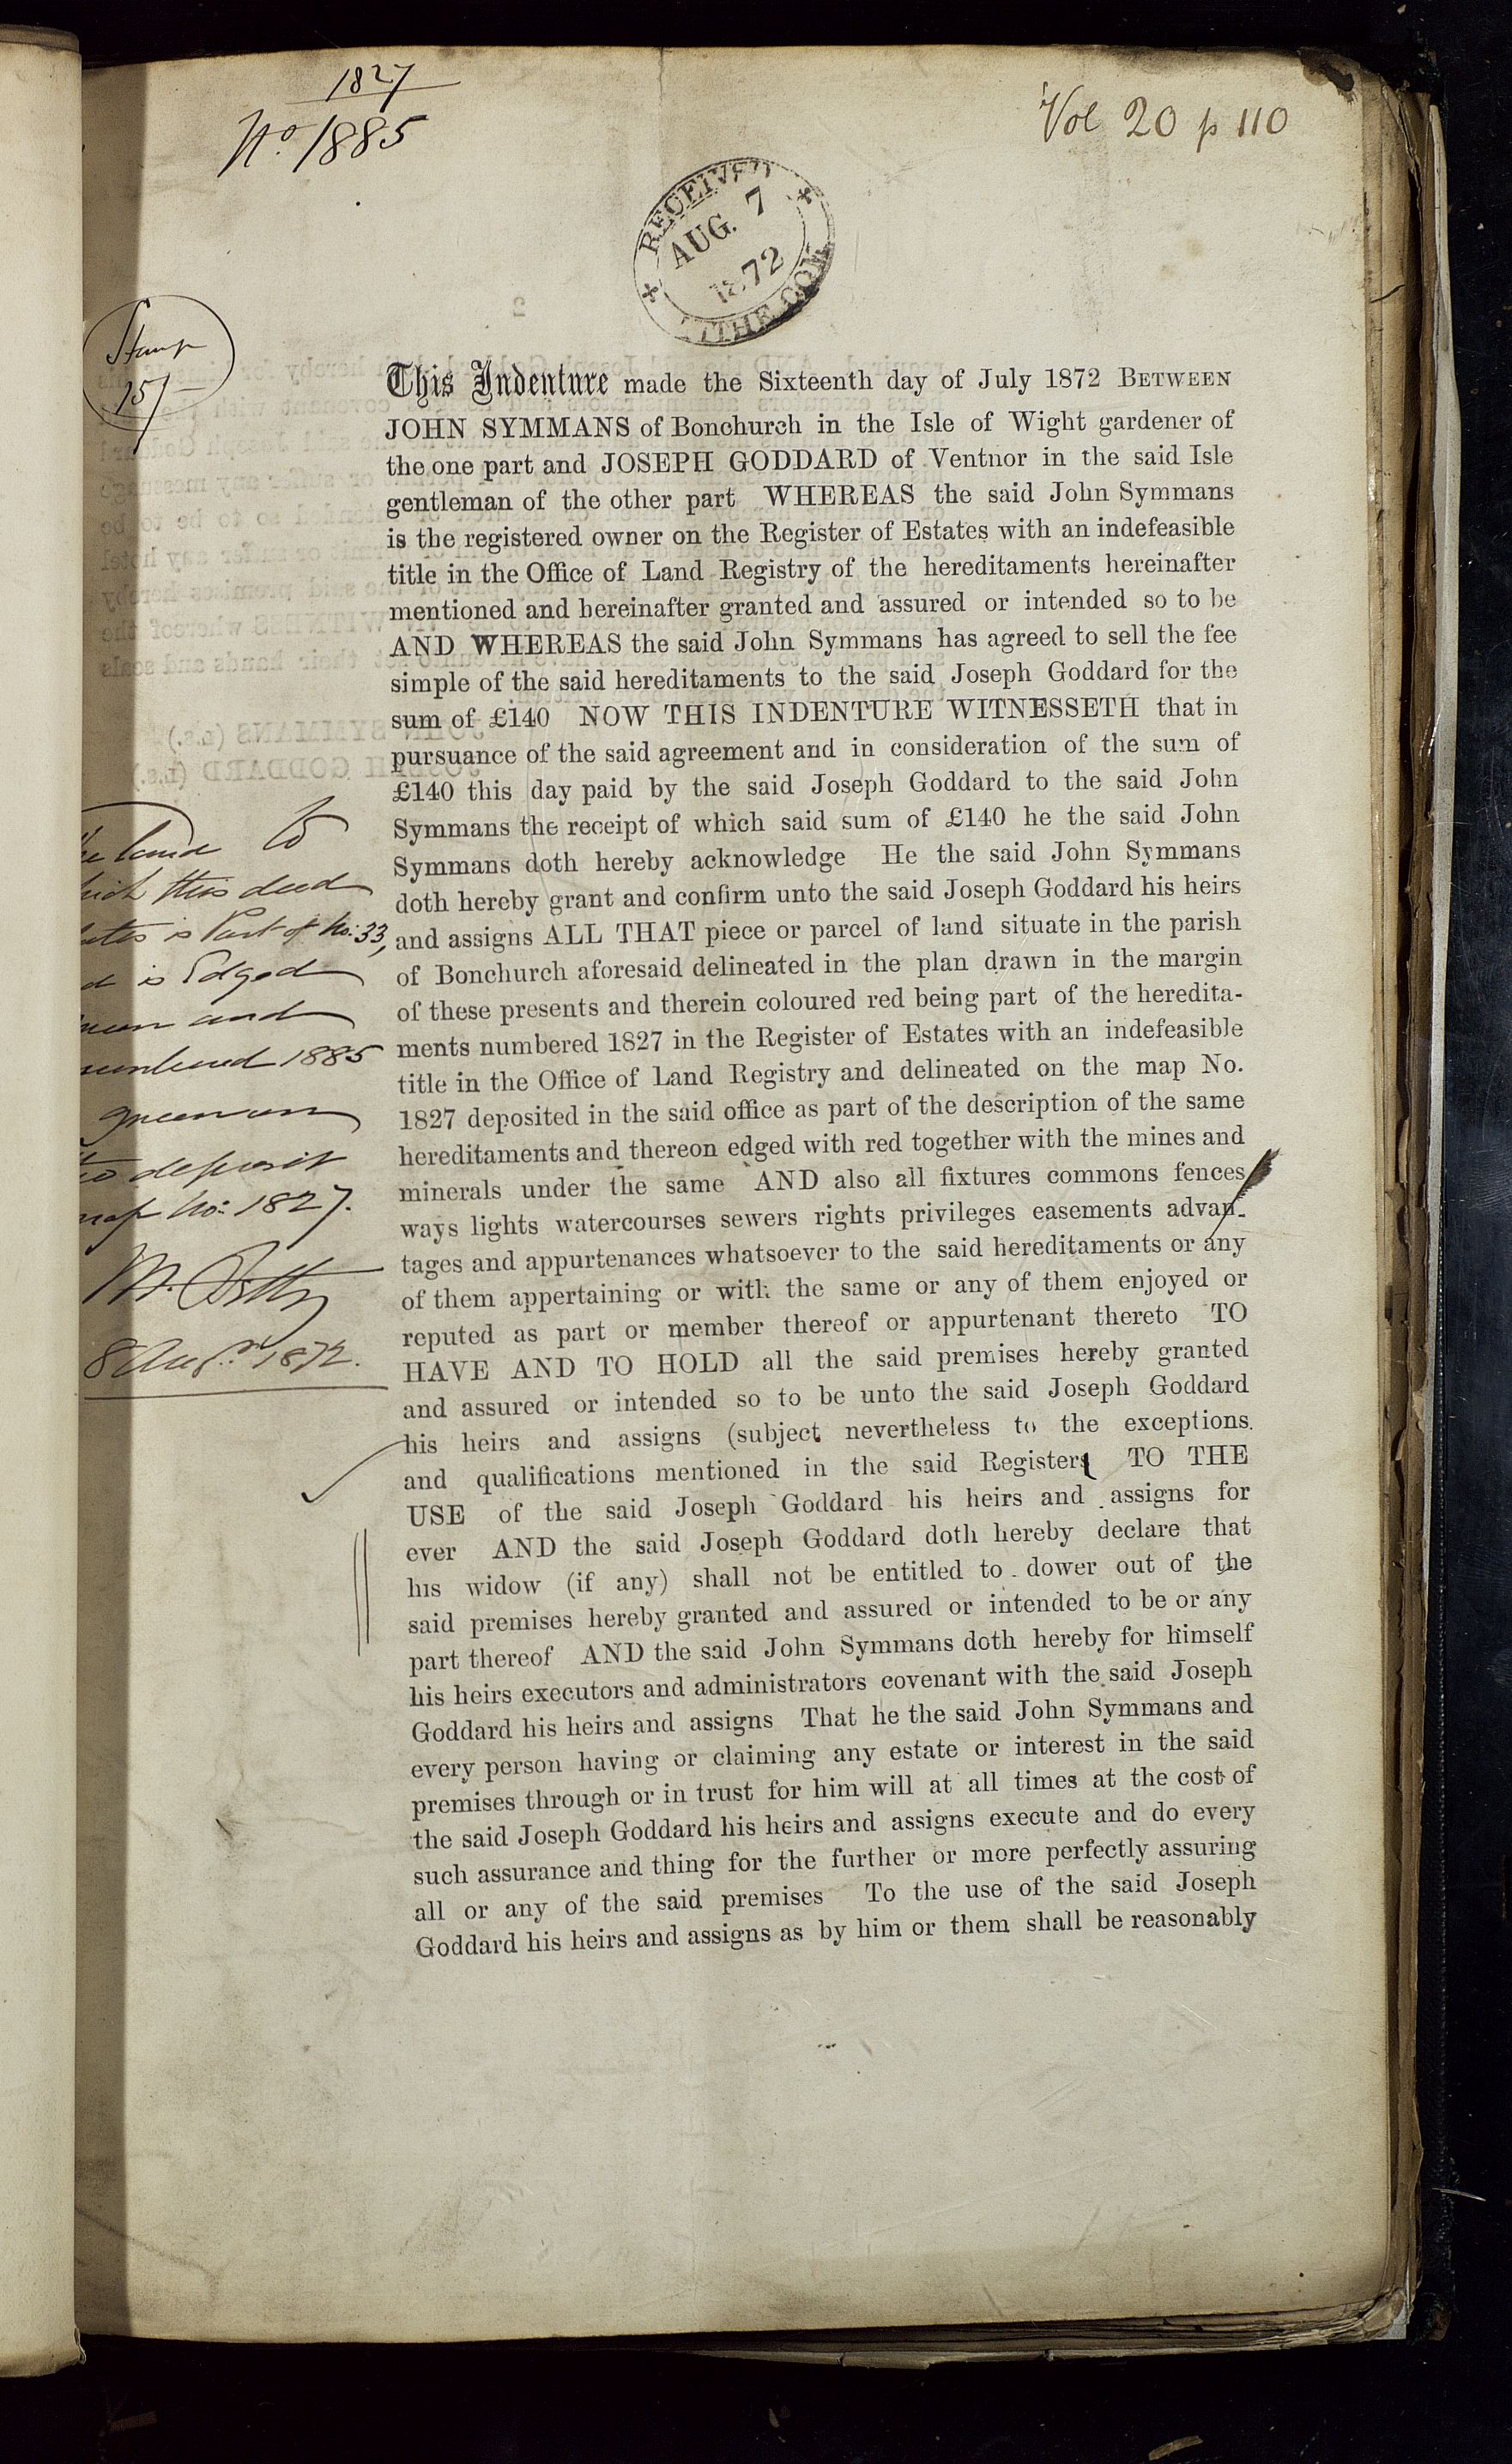 1827
No. 1885
Vol 20 p 110
RECEIVED
AUG. 7
1872
Stamp
15/-
This Indenture made the Sixteenth day of July 1872 BETWEEN
JOHN SYMMANS of Bonchurch in the Isle of Wight gardener of
the one part and JOSEPH GODDARD of Ventnor in the said Isle
gentleman of the other part WHEREAS the said John Symmans
is the registered owner on the Register of Estates with an indefeasible
title in the Office of Land Registry of the hereditaments hereinafter
mentioned and hereinafter granted and assured or intended so to be
AND WHEREAS the said John Symmans has agreed to sell the fee
simple of the said hereditaments to the said Joseph Goddard for the
sum of £140 NOW THIS INDENTURE WITNESSETH that in
pursuance of the said agreement and in consideration of the sum of
£140 this day paid by the said Joseph Goddard to the said John
Symmans the receipt of which said sum of £140 he the said John
Symmans doth hereby acknowledge He the said John Symmans
doth hereby grant and confirm unto the said Joseph Goddard his heirs
and assigns ALL THAT piece or parcel of land situate in the parish
of Bonchurch aforesaid delineated in the plan drawn in the margin
of these presents and therein coloured red being part of the heredita-
ments numbered 1827 in the Register of Estates with an indefeasible
title in the Office of Land Registry and delineated on the map No.
1827 deposited in the said office as part of the description of the same
hereditaments and thereon edged with red together with the mines and
minerals under the same AND also all fixtures commons fences
ways lights watercourses sewers rights privileges easements advan-
tages and appurtenances whatsoever to the said hereditaments or any
of them appertaining or with the same or any of them enjoyed or
reputed as part or member thereof or appurtenant thereto TO
HAVE AND TO HOLD all the said premises hereby granted
and assured or intended so to be unto the said Joseph Goddard
his heirs and assigns (subject nevertheless to the exceptions
and qualifications mentioned in the said Register) TO THE
USE of the said Joseph Goddard his heirs and assigns for
ever AND the said Joseph Goddard doth hereby declare that
his widow (if any) shall not be entitled to dower out of the
said premises hereby granted and assured or intended to be or any
part thereof AND the said John Symmans doth hereby for himself
his heirs executors and administrators covenant with the said Joseph
Goddard his heirs and assigns That he the said John Symmans and
every person having or claiming any estate or interest in the said
premises through or in trust for him will at all times at the cost of
the said Joseph Goddard his heirs and assigns execute and do every
such assurance and thing for the further or more perfectly assuring
all or any of the said premises To the use of the said Joseph
Goddard his heirs and assigns as by him or them shall be reasonably
land to
this deed
is Part of No: 33,
is Edged
and
1885
deposit
No: 1827.
8 Aug. 1872.